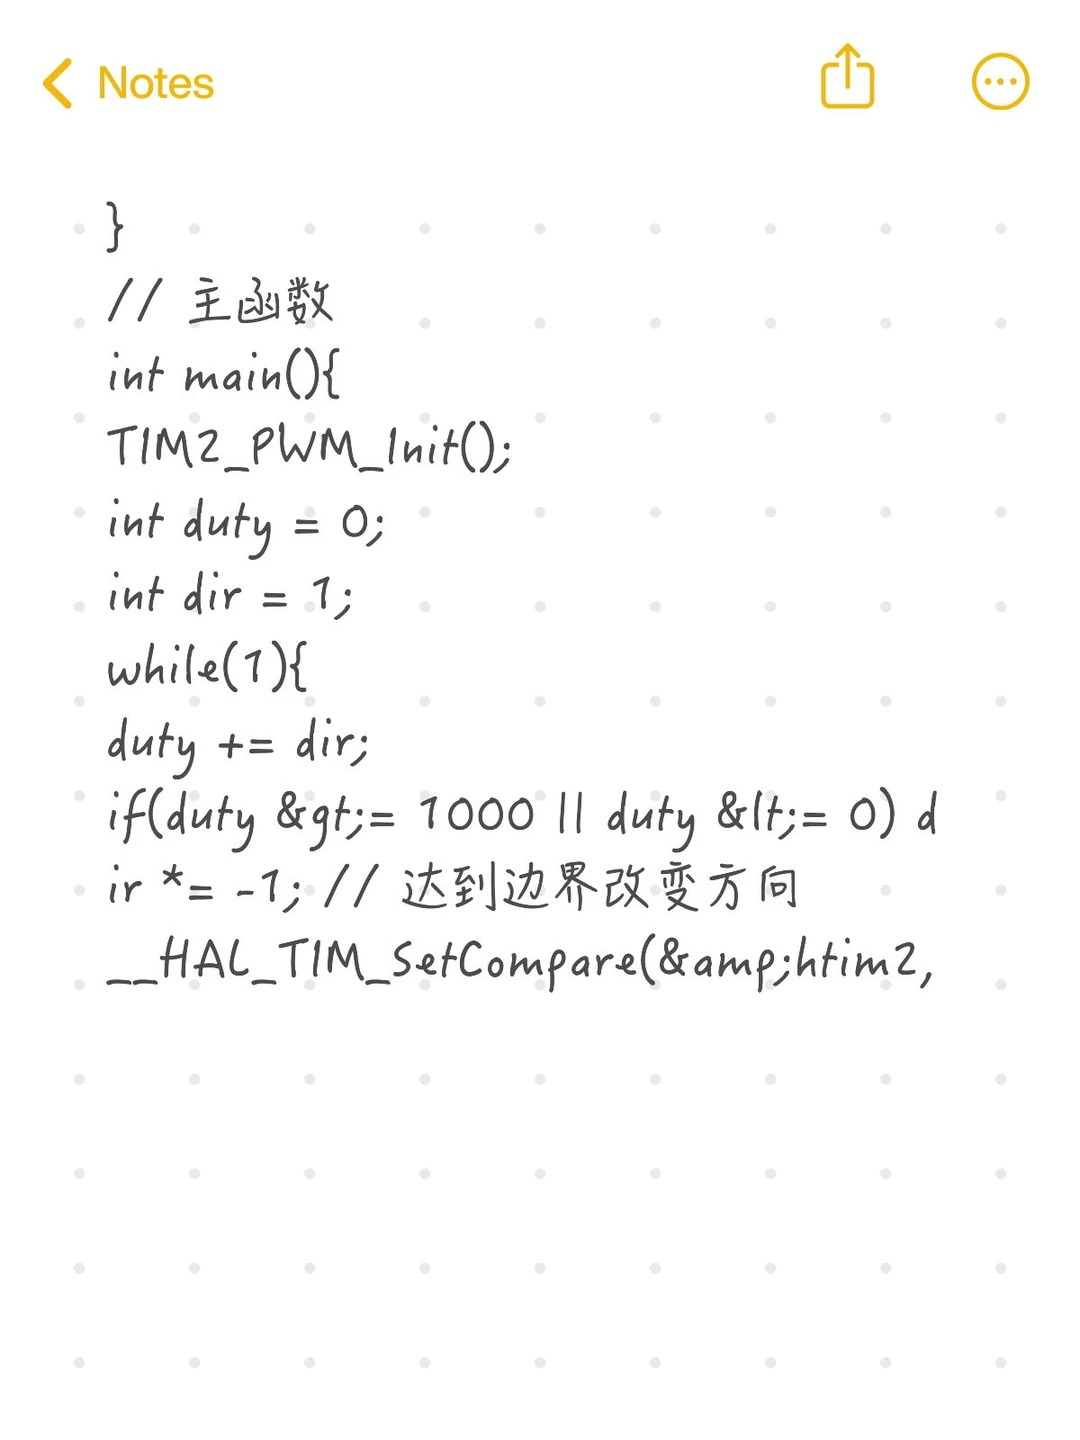 Notes
}
// 主函数
int main(){
TIM2_PWM_Init();
int duty = 0;
int dir = 1;
while(1){
duty += dir;
if(duty &gt;= 1000 || duty &lt;= 0) d
ir *= -1; // 达到边界改变方向
__HAL_TIM_SetCompare(&amp;htim2,